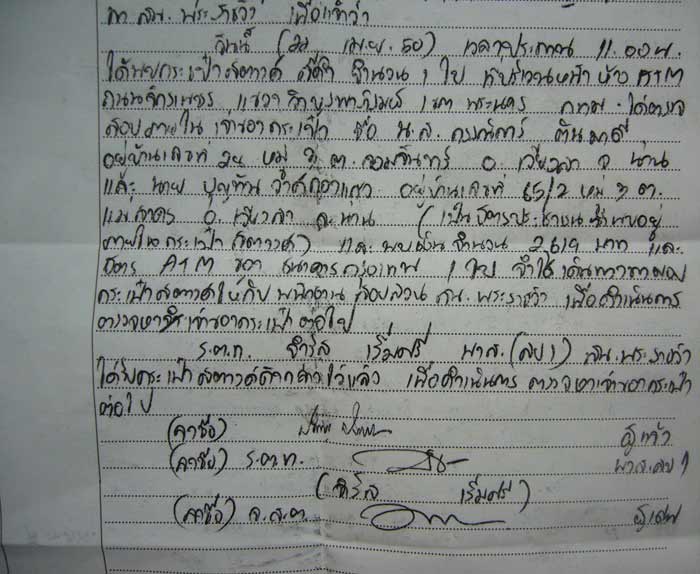 มา สน. พระราชวัง เพื่อแจ้งว่า
วันนี้ (22 เม.ย. 50) เวลาประมาณ 11.00 น.
ได้พบกระเป๋าสตางค์ สีดำ จำนวน 1 ใบ ที่บริเวณหน้าห้าง ATM
ถนนจักรเพชร แขวง วังบูรพาภิรมย์ เขต พระนคร กทม. ได้ตรวจ
สอบภายใน เจ้าของกระเป๋า ชื่อ น.ส. กรรณิการ์
อยู่บ้านเลขที่ หมู่ 3 ต. จอมจันทร์ อ. เวียงสา จ. น่าน
และ นาย บุญทัน อยู่บ้านเลขที่ 65/2 หมู่ 3 ต.
แม่สาคร อ. เวียงสา จ. น่าน (เป็นบัตรประชาชนที่พบอยู่
ภายในกระเป๋าสตางค์) และ พบเงินจำนวน 2619 บาท และ
บัตร ATM ของ ธนาคารกรุงเทพ 1 ใบ จึงได้เดินทางมามอบ
กระเป๋าสตางค์ให้กับ พนักงานสอบสวน สน. พระราชวัง เพื่อดำเนินการ
ตรวจหาเจ้าของกระเป๋าต่อไป
ร.ต.ท. จำรัส เริ่มศรี พงส. (สบ 1) สน. พระราชวัง
ได้รับกระเป๋าสตางค์ดังกล่าวไว้แล้ว เพื่อดำเนินการ ตรวจหาเจ้าของกระเป๋า
ต่อไป
(ลงชื่อ) ผู้แจ้ง
(ลงชื่อ) ร.ต.ท. พงส. สบ 1
(จำรัส เริ่มศรี)
(ลงชื่อ) จ.ส.ต.